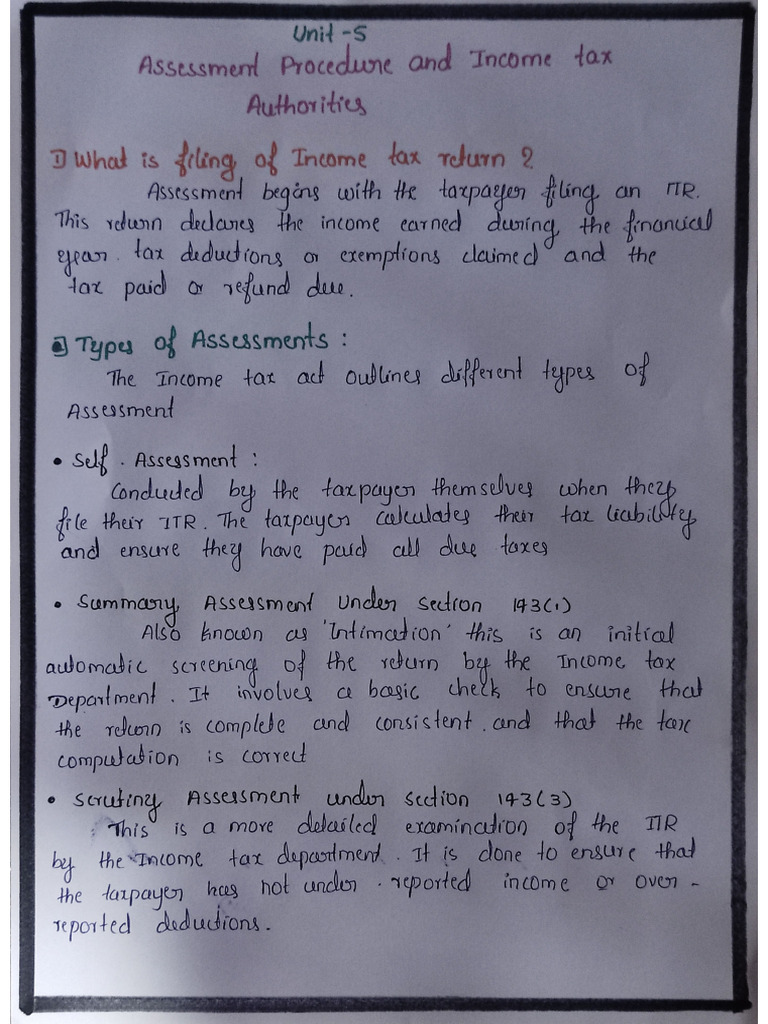 Unit -5
Assessment Procedure and Income tax
Authorities
1) What is filing of Income tax return ?
Assessment begins with the taxpayer filing an ITR.
This return declares the income earned during, the financial
year. tax deductions or exemptions claimed and the
tax paid or refund due.
Types of Assessments :
The Income tax act outlines different types of
Assessment
• Self . Assessment :
Conducted by the taxpayer themselves when they
file their ITR. The taxpayer calculates their tax liability
and ensure they have paid all due taxes
• Summary Assessment Under Section 143(1)
Also known as 'Intimation' this is an initial
automatic screening of the return by the Income tax
Department. It involves a basic check to ensure that
the return is complete and consistent. and that the tax
computation is correct
• Scrutiny Assessment under section 143(3)
This is a more detailed examination of the ITR
by the Income tax department. It is done to ensure that
the taxpayer has not under - reported income or over -
reported deductions.